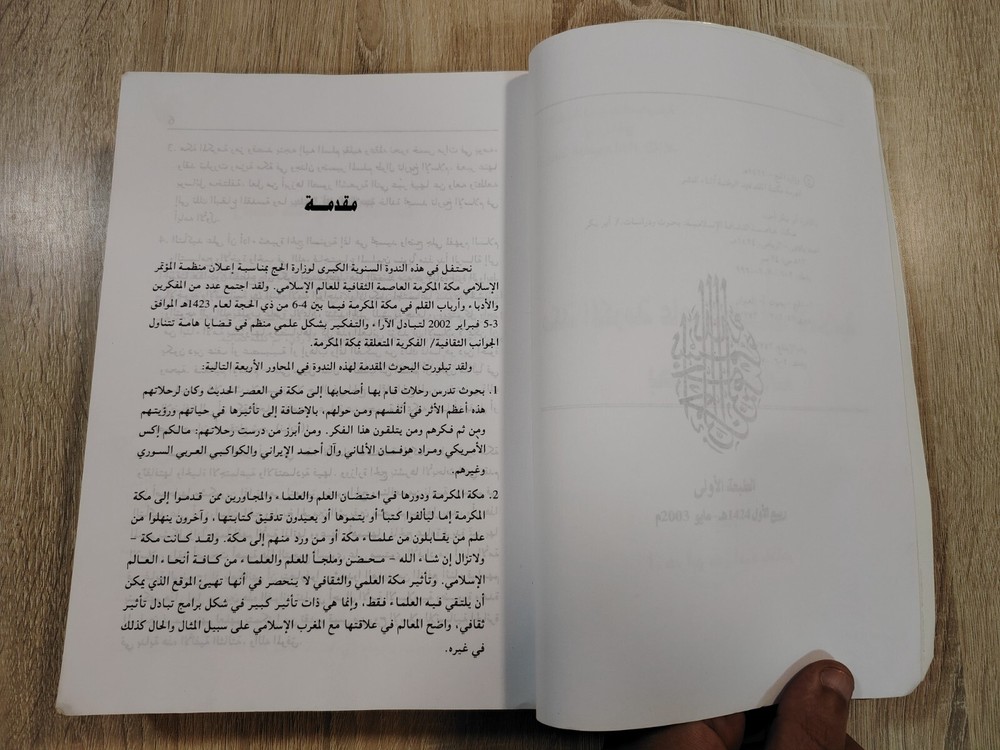 مقدمــة
نحتفل في هذه الندوة السنوية الكبرى لوزارة الحج بمناسبة إعلان منظمة المؤتمر
الإسلامي مكة المكرمة العاصمة الثقافية للعالم الإسلامي. ولقد اجتمع عدد من المفكرين
والأدباء وأرباب القلم في مكة المكرمة فيما بين 4-6 من ذي الحجة لعام 1423هـ الموافق
3-5 فبراير 2002 لتبادل الآراء والتفكير بشكل علمي منظم في قضايا هامة تتناول
الجوانب الثقافية/ الفكرية المتعلقة بمكة المكرمة.
ولقد تبلورت البحوث المقدمة لهذه الندوة في المحاور الأربعة التالية:
1. بحوث تدرس رحلات قام بها أصحابها إلى مكة في العصر الحديث وكان لرحلاتهم
هذه أعظم الأثر في أنفسهم ومن حولهم، بالإضافة إلى تأثيرها في حياتهم ورؤيتهم
ومن ثم فكرهم ومن يتلقون هذا الفكر. ومن أبرز من درست رحلاتهم: مالكم إكس
الأمريكي ومراد هوفمان الألماني وآل أحمد الإيراني والكواكبي العربي السوري
وغيرهم.
2. مكة المكرمة ودورها في احتضان العلم والعلماء والمجاورين ممن قدموا إلى مكة
المكرمة إما ليألفوا كتباً أو يتموها أو يعيدون تدقيق كتابتها، وآخرون ينهلوا من
علم من يقابلون من علماء مكة أو من ورد منهم إلى مكة. ولقد كانت مكة –
ولاتزال إن شاء الله – محضن وملجأ للعلم والعلماء من كافة أنحاء العالم
الإسلامي. وتأثير مكة العلمي والثقافي لا ينحصر في أنها تهيئ الموقع الذي يمكن
أن يلتقي فيه العلماء فقط، وإنما هي ذات تأثير كبير في شكل برامج تبادل تأثير
ثقافي، واضح المعالم في علاقتها مع المغرب الإسلامي على سبيل المثال والحال كذلك
في غيره.
الطبعة الأولى
ربيع الأول 1424هـ- مايو 2003م